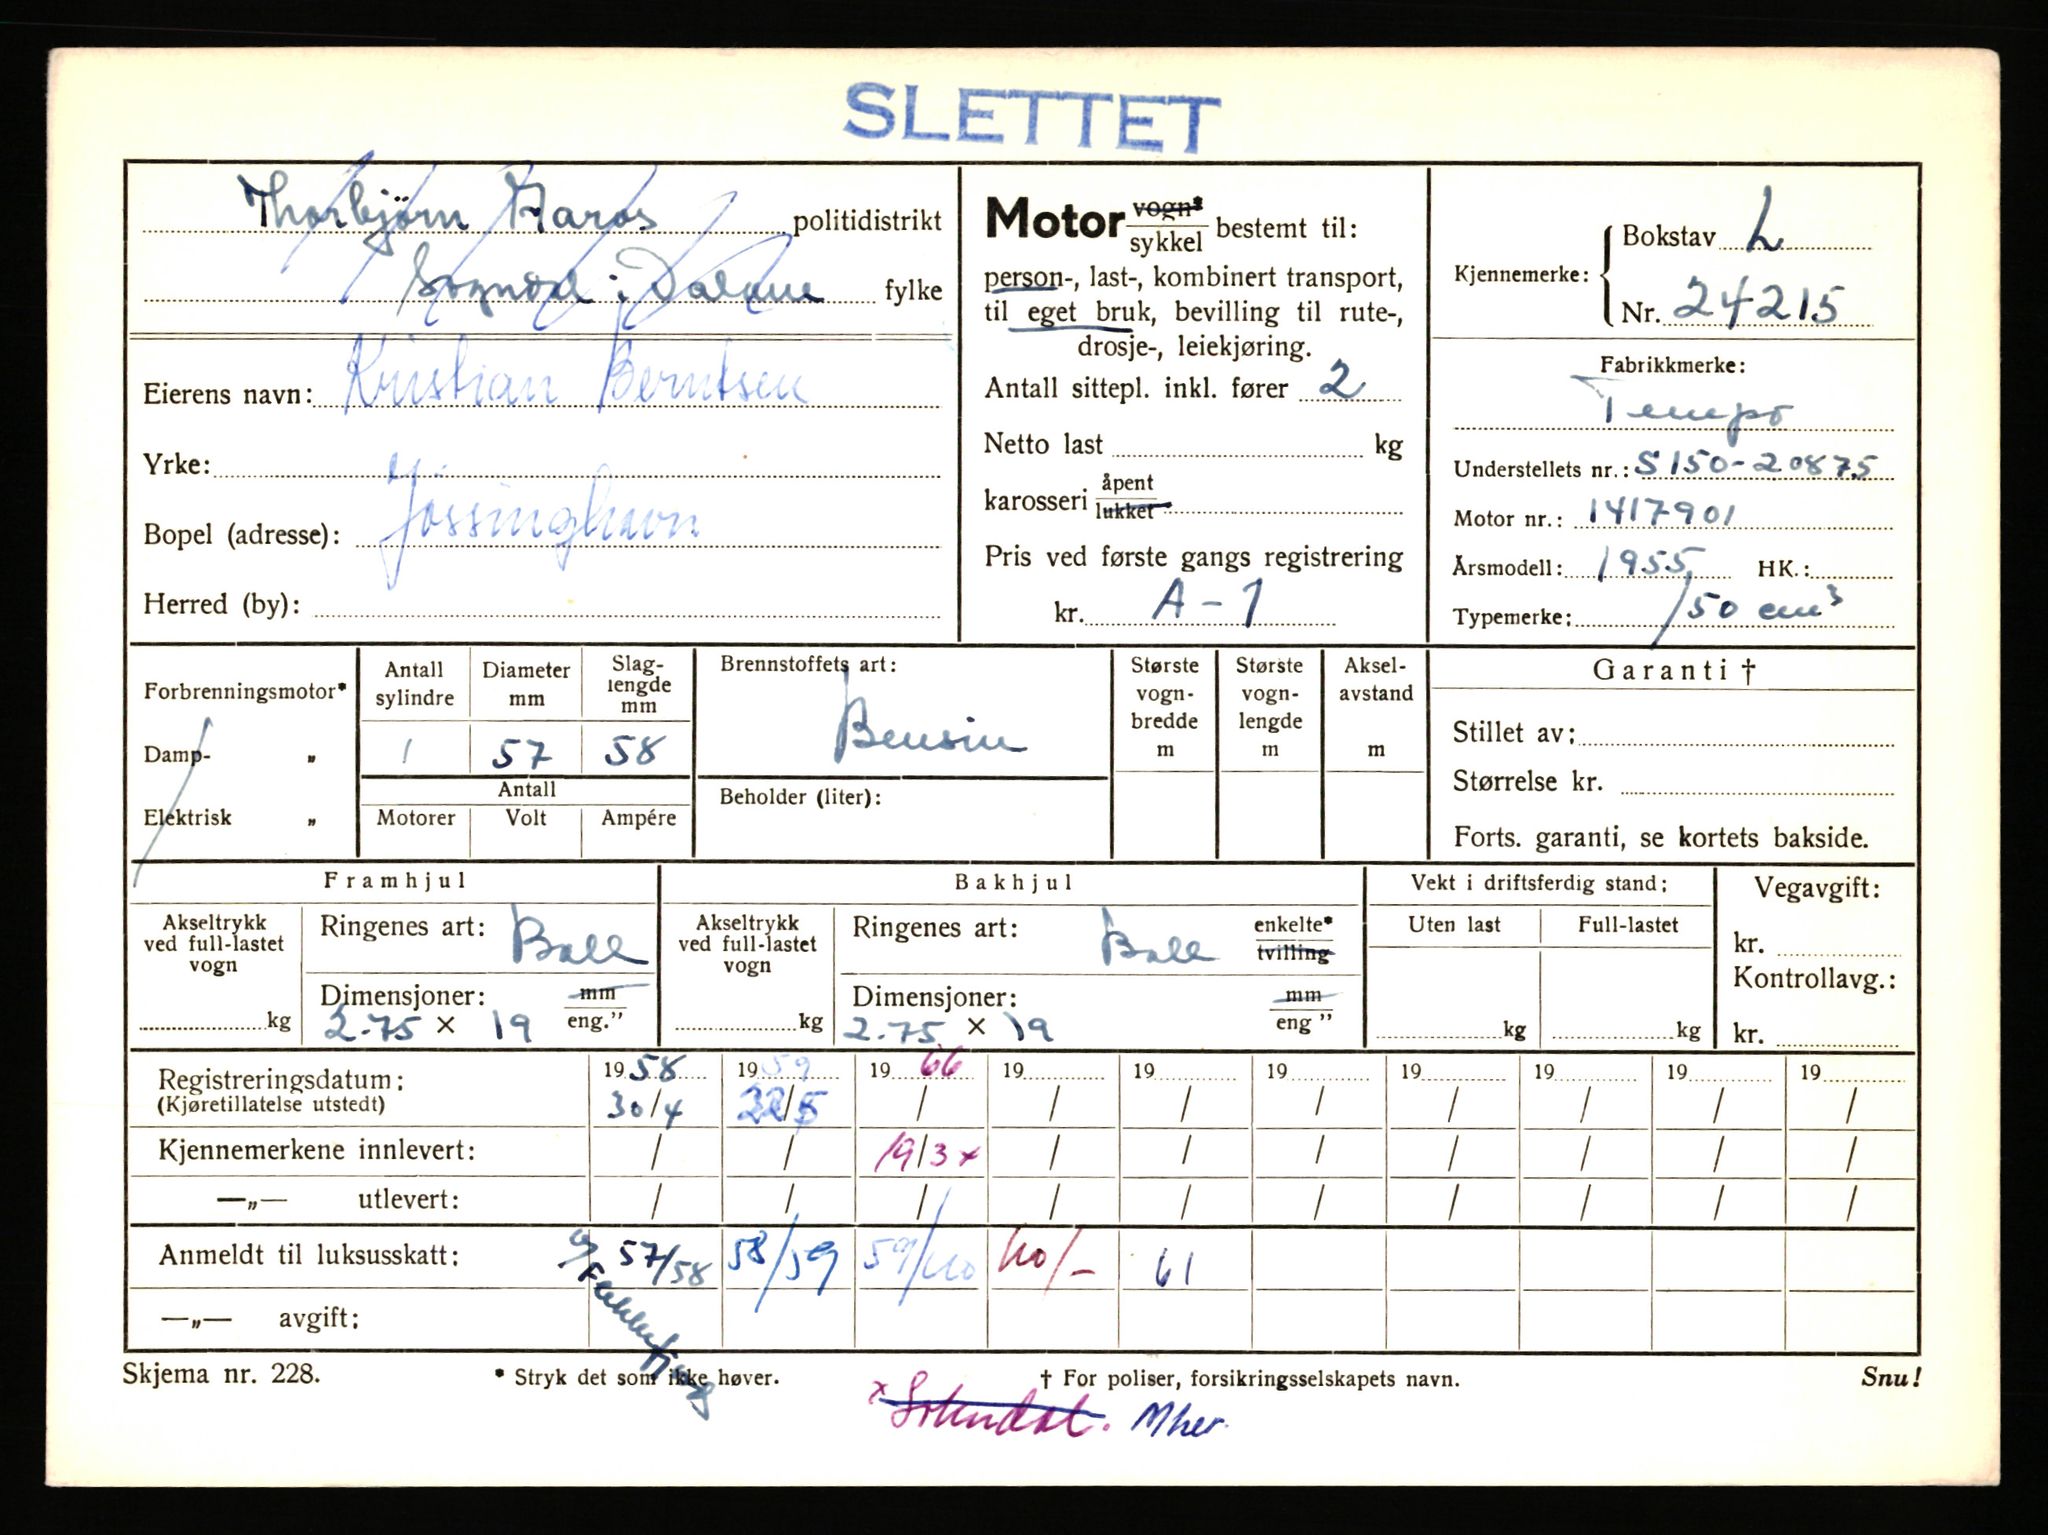 SLETTET
Thorbjørn Aaros politidistrikt
Sogndal i Dalane fylke
Eierens navn: Kristian Berntsen
Yrke:
Bopel (adresse): Jøssinghavn
Herred (by):
Motor vogn* sykkel bestemt til:
person-, last-, kombinert transport,
til eget bruk, bevilling til rute-,
drosje-, leiekjøring.
Antall sittepl. inkl. fører 2
Netto last kg
karosseri åpent lukket
Pris ved første gangs registrering
kr. A-1
Kjennemerke: Bokstav L
Nr. 24215
Fabrikkmerke:
Tempo
Understellets nr.: S150-20875
Motor nr.: 1417901
Årsmodell: 1955 HK.:
Typemerke: 150 cm³
Forbrenningsmotor*
Damp- „
Elektrisk „
Antall sylindre Diameter mm Slag-lengde mm
1 57 58
Antall
Motorer Volt Ampére
Brennstoffets art:
Bensin
Beholder (liter):
Største vogn-bredde m
Største vogn-lengde m
Aksel-avstand m
Garanti †
Stillet av:
Størrelse kr.
Forts. garanti, se kortets bakside.
Framhjul
Akseltrykk ved full-lastet vogn
kg
Ringenes art: Ball
Dimensjoner: mm eng."
2.75 × 19
Bakhjul
Akseltrykk ved full-lastet vogn
kg
Ringenes art: Ball enkelte* tvilling
Dimensjoner: mm eng "
2.75 × 19
Vekt i driftsferdig stand:
Uten last Full-lastet
kg kg
Vegavgift:
kr.
Kontrollavg.:
kr.
Registreringsdatum: 1958 1959 1966 19 19 19 19 19 19 19
(Kjøretillatelse utstedt) 30/4 22/5 / / / / / / / /
Kjennemerkene innlevert: / / 19/3 x / / / / / / /
—„— utlevert: / / / / / / / / / /
Anmeldt til luksusskatt: 57/58 58/59 59/60 60/- 61
—„— avgift:
Flekkefjord
Skjema nr. 228. * Stryk det som ikke høver. † For poliser, forsikringsselskapets navn. Snu!
x